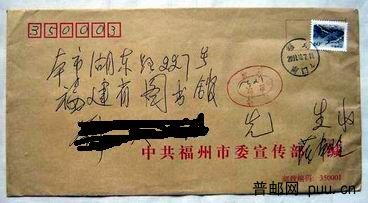 350003
本市湖东路227号
福建省图书馆
先 生收
中共福州市委宣传部
邮政编码：350001
普邮网 puu.cn